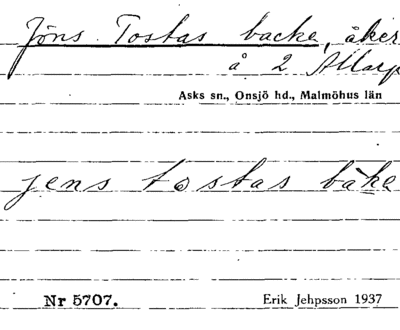 Jöns Tostas backe, åker
å 2 Allarp
Asks sn., Onsjö hd., Malmöhus län
jens tostas bake
Nr 5707. Erik Jehpsson 1937